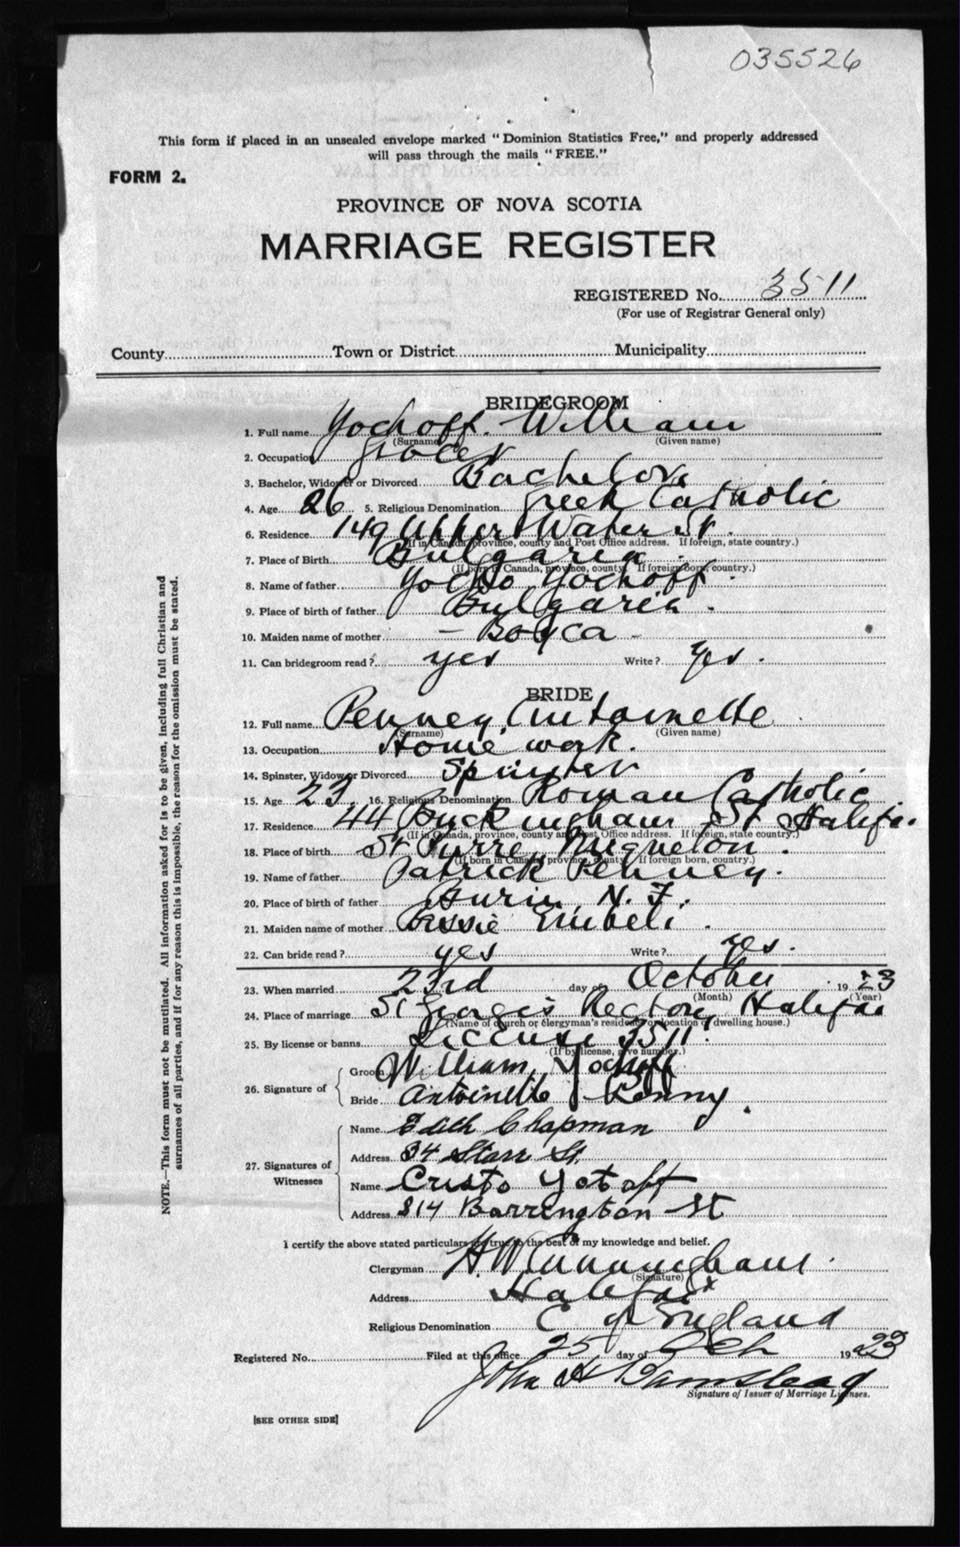 035526
This form if placed in an unsealed envelope marked "Dominion Statistics Free," and properly addressed
will pass through the mails "FREE."
FORM 2.
PROVINCE OF NOVA SCOTIA
MARRIAGE REGISTER
REGISTERED No. 3511
(For use of Registrar General only)
County Town or District Municipality
BRIDEGROOM
1. Full name Yochoff. William
(Surname) (Given name)
2. Occupation grocer
3. Bachelor, Widower or Divorced Bachelor
4. Age 26 5. Religious Denomination Greek Catholic
6. Residence 149 Upper Water St.
(If in Canada, province, county and Post Office address. If foreign, state country.)
7. Place of Birth Bulgaria.
(If born in Canada, province, county. If foreign born, country.)
8. Name of father Yocho Yochoff.
9. Place of birth of father Bulgaria.
10. Maiden name of mother - Boyca -
11. Can bridegroom read? yes Write? Yes.
BRIDE
12. Full name Penney Antoinette
(Surname) (Given name)
13. Occupation Home work.
14. Spinster, Widow or Divorced Spinster
15. Age 23, 16. Religious Denomination Roman Catholic
17. Residence 44 Buckingham St Halifax.
(If in Canada, province, county and Post Office address. If foreign, state country.)
18. Place of birth St Pierre, Miquelon.
(If born in Canada, province, county. If foreign born, country.)
19. Name of father Patrick Penney.
20. Place of birth of father Burin, N. F.
21. Maiden name of mother Bessie
22. Can bride read? yes Write? Yes.
23. When married 23rd day of October 1923
(Month) (Year)
24. Place of marriage St Georges Rectory Halifax
(Name of church or clergyman's residence or location of dwelling house.)
25. By license or banns License 3511
(If by license, give number.)
26. Signature of
Groom William, Yochoff
Bride Antoinette Penny.
27. Signatures of Witnesses
Name Edith Chapman
Address 34 Starr St.
Name Cristo Yotoff
Address 314 Barrington St
I certify the above stated particulars are true to the best of my knowledge and belief.
Clergyman H. W. Cunningham.
(Signature)
Address Halifax
Religious Denomination C of England
Registered No. Filed at this office 25 day of Oct 1923
John H Barnstead
Signature of Issuer of Marriage Licenses.
[SEE OTHER SIDE]
NOTE.—This form must not be mutilated. All information asked for is to be given, including full Christian and
surnames of all parties, and if for any reason this is impossible, the reason for the omission must be stated.